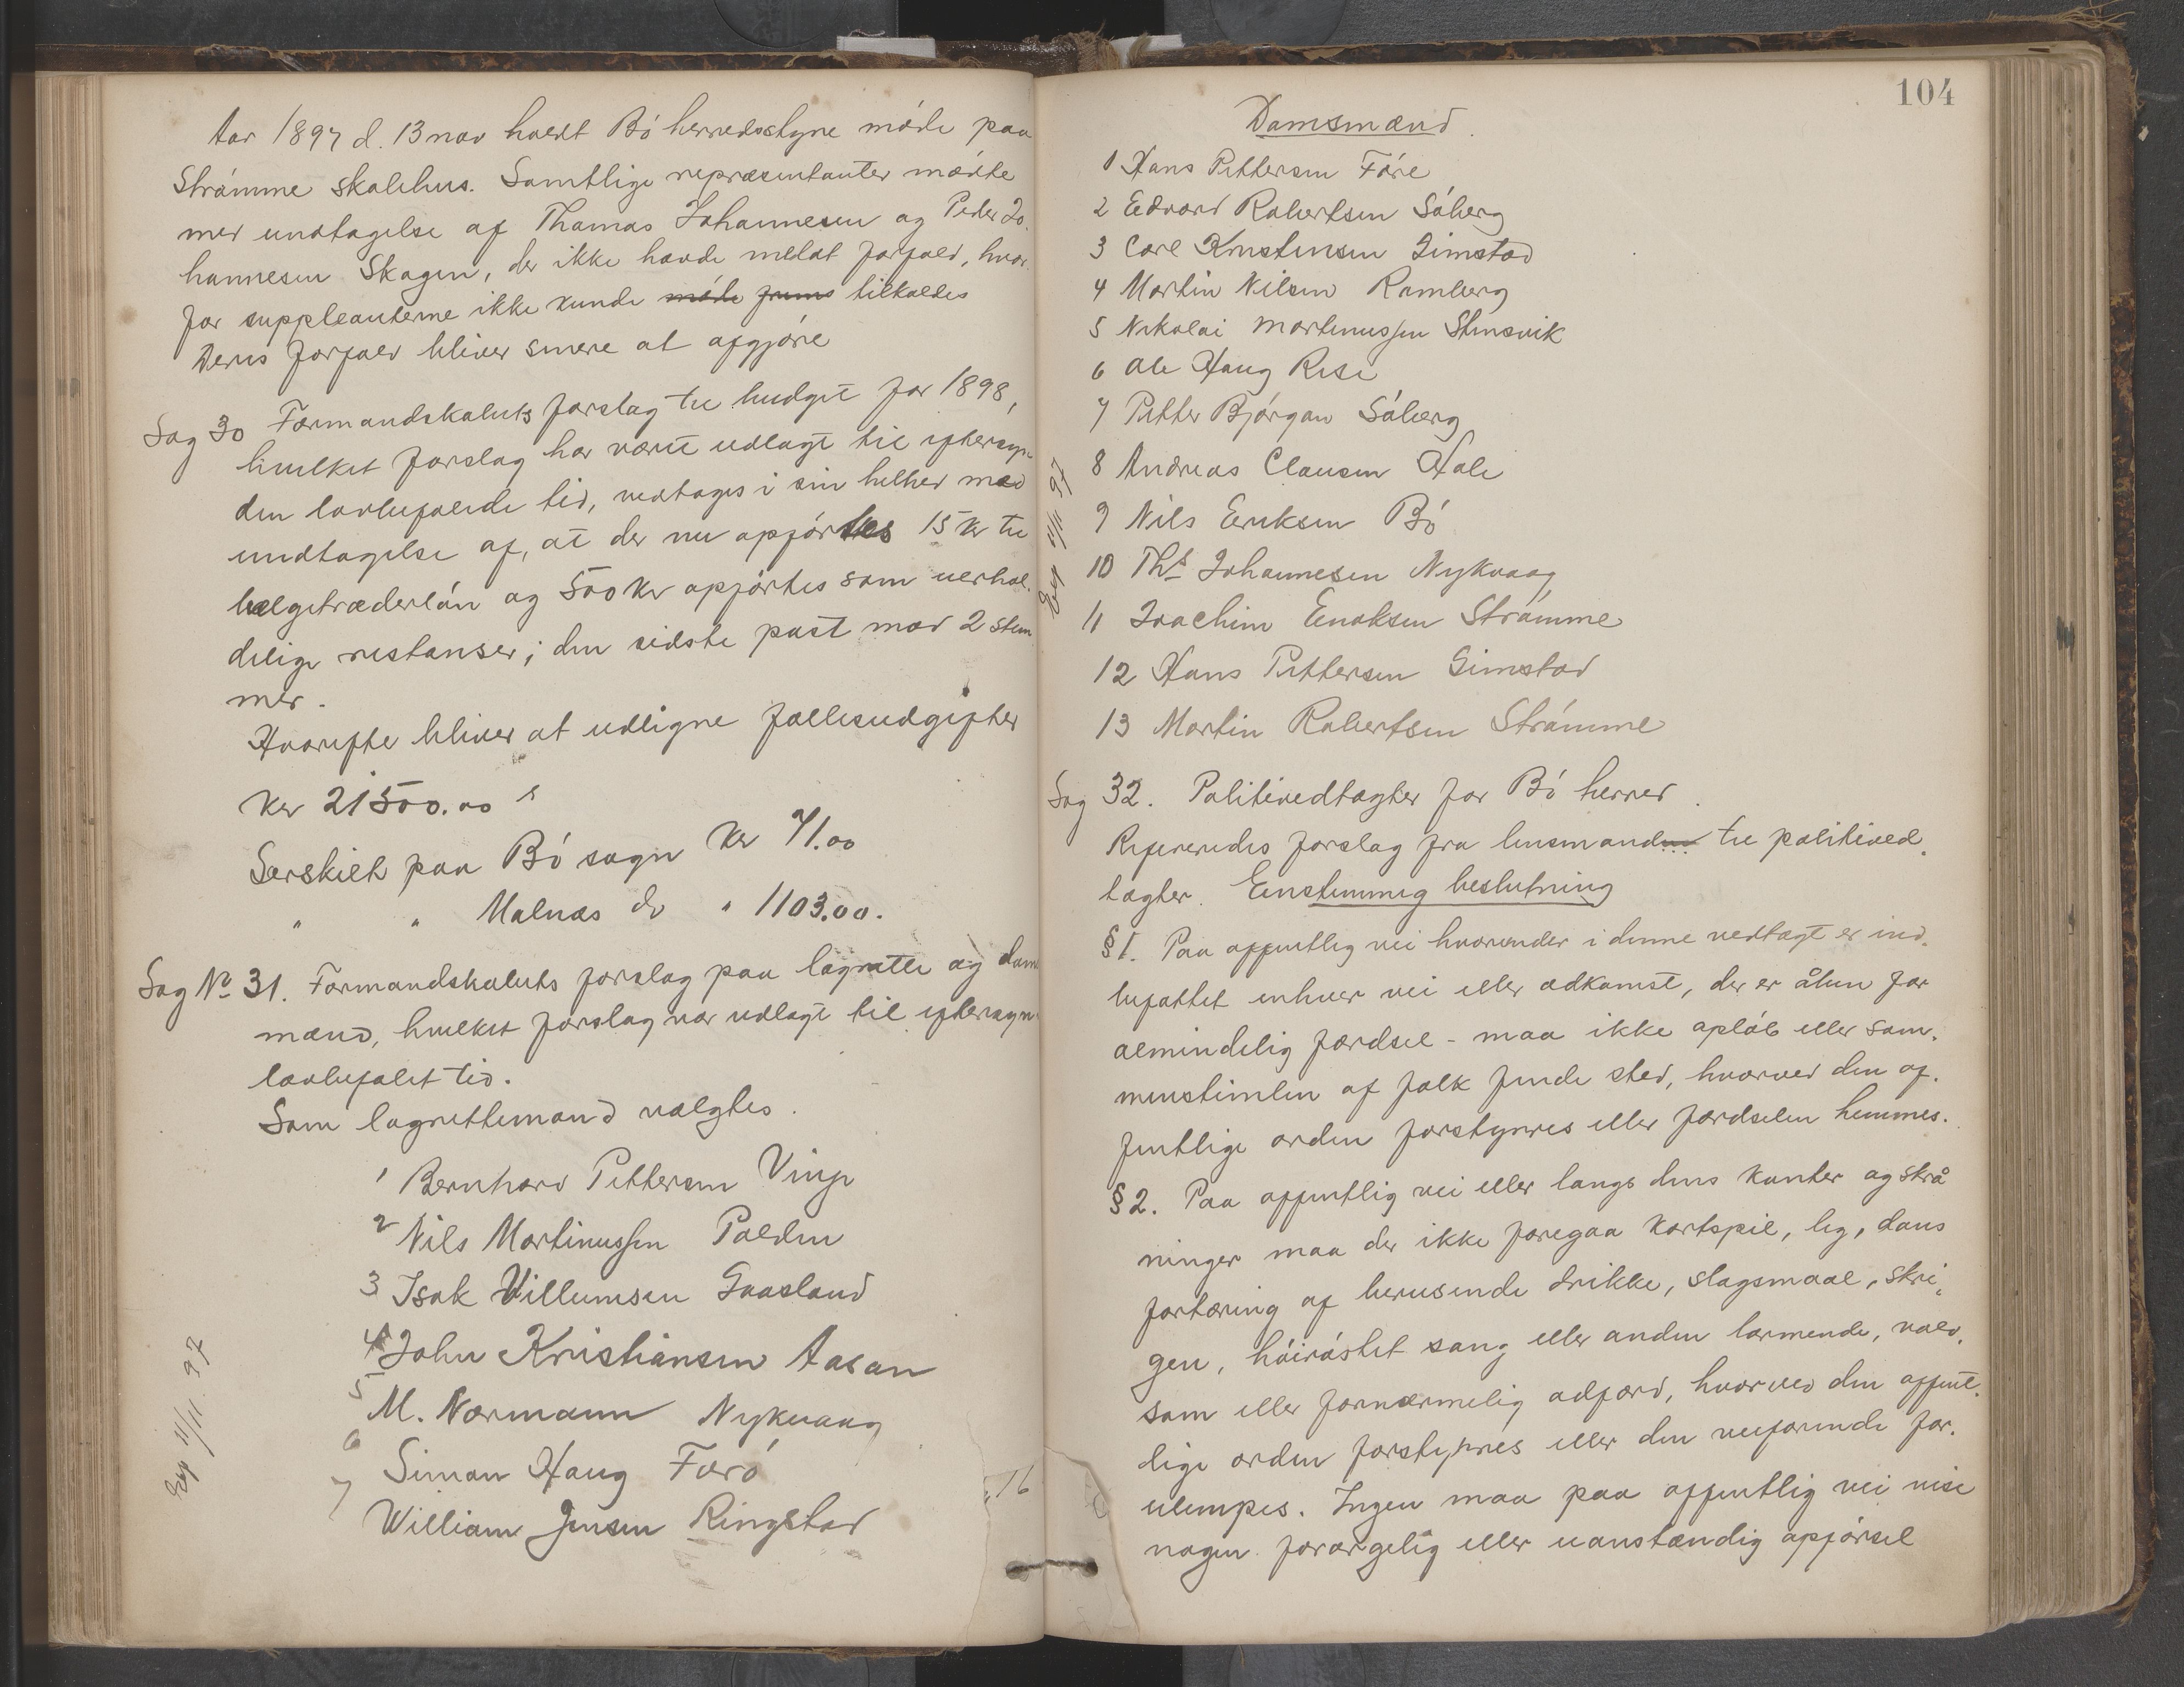 Aar 1897 d. 13 nov holdt Bö herredsstyre möde paa
Strömme skolehus. Samtlige repræsentanter mödte
med undtagelse af Thomas Johannesen og Peder Jo-
hannesen Skagen, der ikke havde meldt forfald, hvor-
for suppleanterne ikke kunde möde tilkaldes
Deres forfald bliver senere at afgjöre
Sag 30 Formandskabets forslag til budget for 1898,
hvilket forslag har været udlagt til eftersyn
den lovbefalede tid, vedtages i sin helhed med
undtagelse af, at der nu opförtes 15 kr til
belgetræderlön og 500 kr opförtes som uerhol-
delige restanser; den sidste post mod 2 stem
mer.
Hvorefter bliver at udligne fællesudgifter
Kr 21500.00
Særskilt paa Bö sogn Kr 71.00
" " Malnæs do " 1103.00.
Sag No 31. Formandskabets forslag paa lagrette og doms
mænd, hvilket forslag var udlagt til eftersyn
lovbefalet tid.
Som lagrettemænd valgtes.
1 Bernhard Pettersen Vinje
2 Nils Martinussen Polden
3 Isak Willumsen Gaasland
4 John Kristiansen Aasan
5 M. Normann Nykvaag
6 Simon Haug Færö
7 William Jensen Ringstad
Exp 11/11 97
16
104
Domsmænd.
1 Hans Pettersen Före
2 Edvard Robertsen Söberg
3 Carl Kristensen Gimstad
4 Martin Nilsen Ramberg
5 Nikolai Martinussen Steinsvik
6 Ole Haug Rise
7 Petter Björgan Söberg
8 Andreas Clausen Hole
9 Nils Eriksen Bö
10 Ths Johannesen Nykvaag
11 Joachim Enoksen Strömme
12 Hans Pettersen Gimstad
13 Martin Robertsen Strömme
Exp 11/11 97
Sag 32. Politivedtægter for Bö herred.
Refereredes forslag fra lensmanden til politived-
tægter. Eenstemmig beslutning
§ 1. Paa offentlig vei hvorunder i denne vedtægt er ind-
befattet enhver vei eller adkomst, der er åben for
almindelig færdsel - maa ikke opløb eller sam-
menstimlen af folk finde sted, hvorved den of-
fentlige orden forstyrres eller færdselen hemmes.
§ 2. Paa offentlig vei eller langs dens kanter og skrå
ninger maa der ikke foregaa kortspil, leg, dans
fortæring af berusende drikke, slagsmaal, skri-
gen, höiröstet sang eller anden larmende, vold-
som eller fornærmelig adfærd, hvorved den offent-
lige orden forstyrres eller den veifarende for-
ulempes. Ingen maa paa offentlig vei vise
nogen forargelig eller uanstændig opförsel